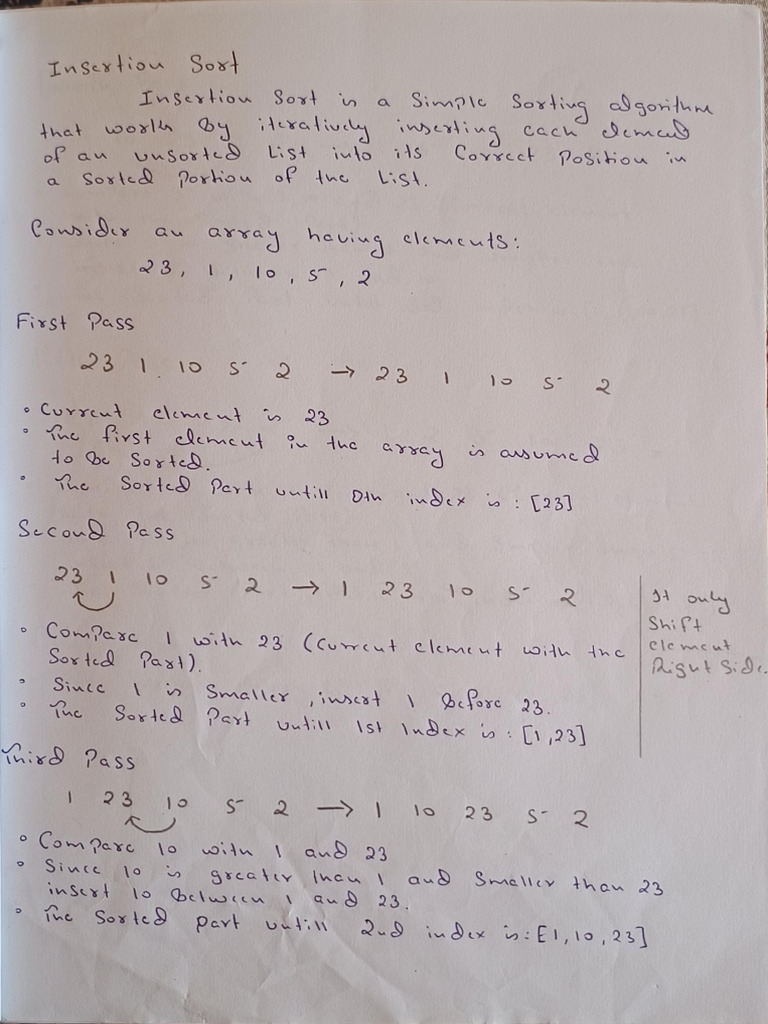 Insertion Sort
Insertion Sort is a Simple Sorting algorithm
that works by iteratively inserting each element
of an unsorted List into its Correct Position in
a Sorted Portion of the List.
Consider an array having elements:
23, 1, 10, 5, 2
First Pass
23 1 10 5 2 → 23 1 10 5 2
• Current element is 23
• The first element in the array is assumed
to be Sorted.
• The Sorted Part untill 0th index is : [23]
Second Pass
23 1 10 5 2 → 1 23 10 5 2
• Compare 1 with 23 (Current element with the
Sorted Part).
• Since 1 is Smaller, insert 1 before 23.
• The Sorted Part untill 1st Index is : [1,23]
It only
Shift
element
Right Side.
Third Pass
1 23 10 5 2 → 1 10 23 5 2
• Compare 10 with 1 and 23
• Since 10 is greater than 1 and Smaller than 23
insert 10 between 1 and 23.
• The Sorted part untill 2nd index is: [1, 10, 23]